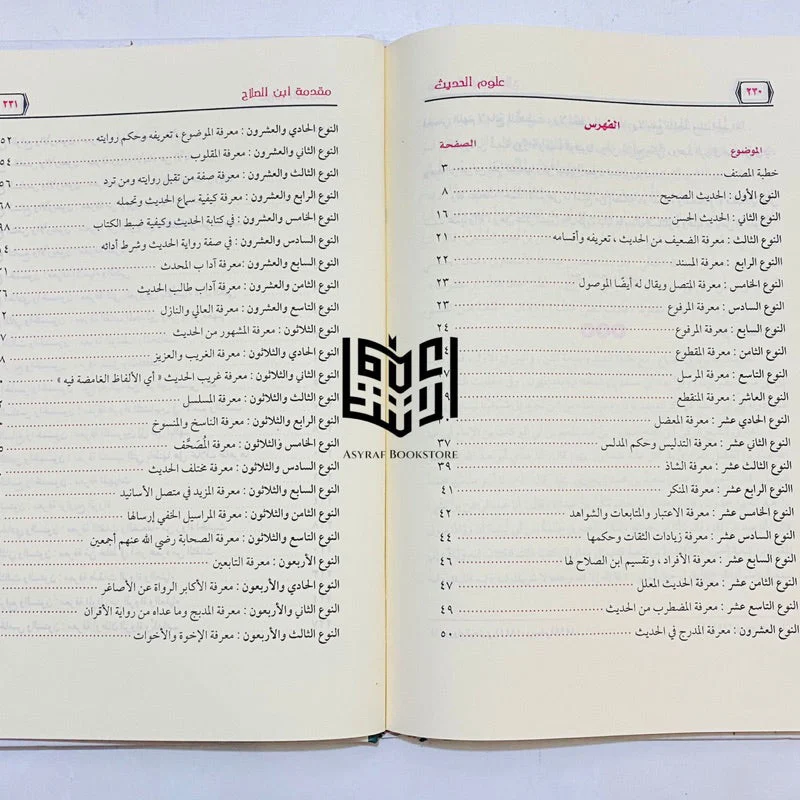 ٢٣٠
علوم الحديث
الفهرس
الموضوع الصفحة
خطبة المصنف ٣
النوع الأول : الحديث الصحيح ٨
النوع الثاني : الحديث الحسن ١٦
النوع الثالث : معرفة الضعيف من الحديث ، تعريفه وأقسامه ٢١
النوع الرابع : معرفة المسند ٢٢
النوع الخامس : معرفة المتصل ويقال له أيضًا الموصول ٢٣
النوع السادس : معرفة المرفوع ٢٣
النوع السابع : معرفة المرفوع ٢٤
النوع الثامن : معرفة المقطوع
النوع التاسع : معرفة المرسل
النوع العاشر : معرفة المنقطع
النوع الحادي عشر : معرفة المعضل
النوع الثاني عشر : معرفة التدليس وحكم المدلس ٣٧
النوع الثالث عشر : معرفة الشاذ ٣٩
النوع الرابع عشر : معرفة المنكر ٤١
النوع الخامس عشر : معرفة الاعتبار والمتابعات والشواهد ٤٢
النوع السادس عشر : معرفة زيادات الثقات وحكمها ٤٤
النوع السابع عشر : معرفة الأفراد ، وتقسيم ابن الصلاح لها ٤٦
النوع الثامن عشر : معرفة الحديث المعلل ٤٧
النوع التاسع عشر : معرفة المضطرب من الحديث ٤٩
النوع العشرون : معرفة المدرج في الحديث ٥٠
مقدمة ابن الصلاح
٢٣١
النوع الحادي والعشرون : معرفة الموضوع ، تعريفه وحكم روايته ٥٢
النوع الثاني والعشرون : معرفة المقلوب ٥٤
النوع الثالث والعشرون : معرفة صفة من تقبل روايته ومن ترد ٥٦
النوع الرابع والعشرون : معرفة كيفية سماع الحديث وتحمله
النوع الخامس والعشرون : في كتابة الحديث وكيفية ضبط الكتاب
النوع السادس والعشرون : في صفة رواية الحديث وشرط أدائه
النوع السابع والعشرون :معرفة آداب المحدث
النوع الثامن والعشرون : معرفة آداب طالب الحديث
النوع التاسع والعشرون : معرفة العالي والنازل
النوع الثلاثون : معرفة المشهور من الحديث
النوع الحادي والثلاثون : معرفة الغريب والعزيز
النوع الثاني والثلاثون : معرفة غريب الحديث « أي الألفاظ الغامضة فيه »
النوع الثالث والثلاثون : معرفة المسلسل
النوع الرابع والثلاثون : معرفة الناسخ والمنسوخ
النوع الخامس والثلاثون : معرفة المُصَحَّف
النوع السادس والثلاثون : معرفة مختلف الحديث
النوع السابع والثلاثون : معرفة المزيد في متصل الأسانيد
النوع الثامن والثلاثون : معرفة المراسيل الخفي إرسالها
النوع التاسع والثلاثون : معرفة الصحابة رضي الله عنهم أجمعين
النوع الأربعون : معرفة التابعين
النوع الحادي والأربعون : معرفة الأكابر الرواة عن الأصاغر
النوع الثاني والأربعون : معرفة المدبج وما عداه من رواية الأقران
النوع الثالث والأربعون : معرفة الإخوة والأخوات
ASYRAF BOOKSTORE